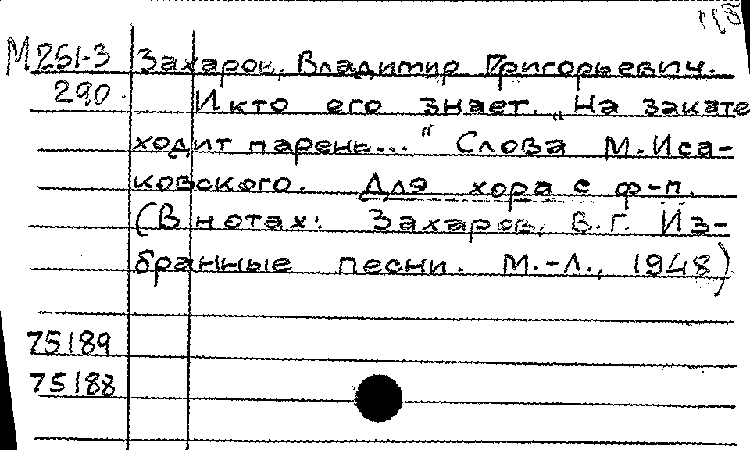 М251-3 Захаров, Владимир Григорьевич.
290. И кто его знает. "На закате
ходит парень..." Слова М. Иса-
ковского. Для хора с ф-п.
(В нотах: Захаров, В.Г. Из-
бранные песни. М.-Л., 1948)
75189
75188